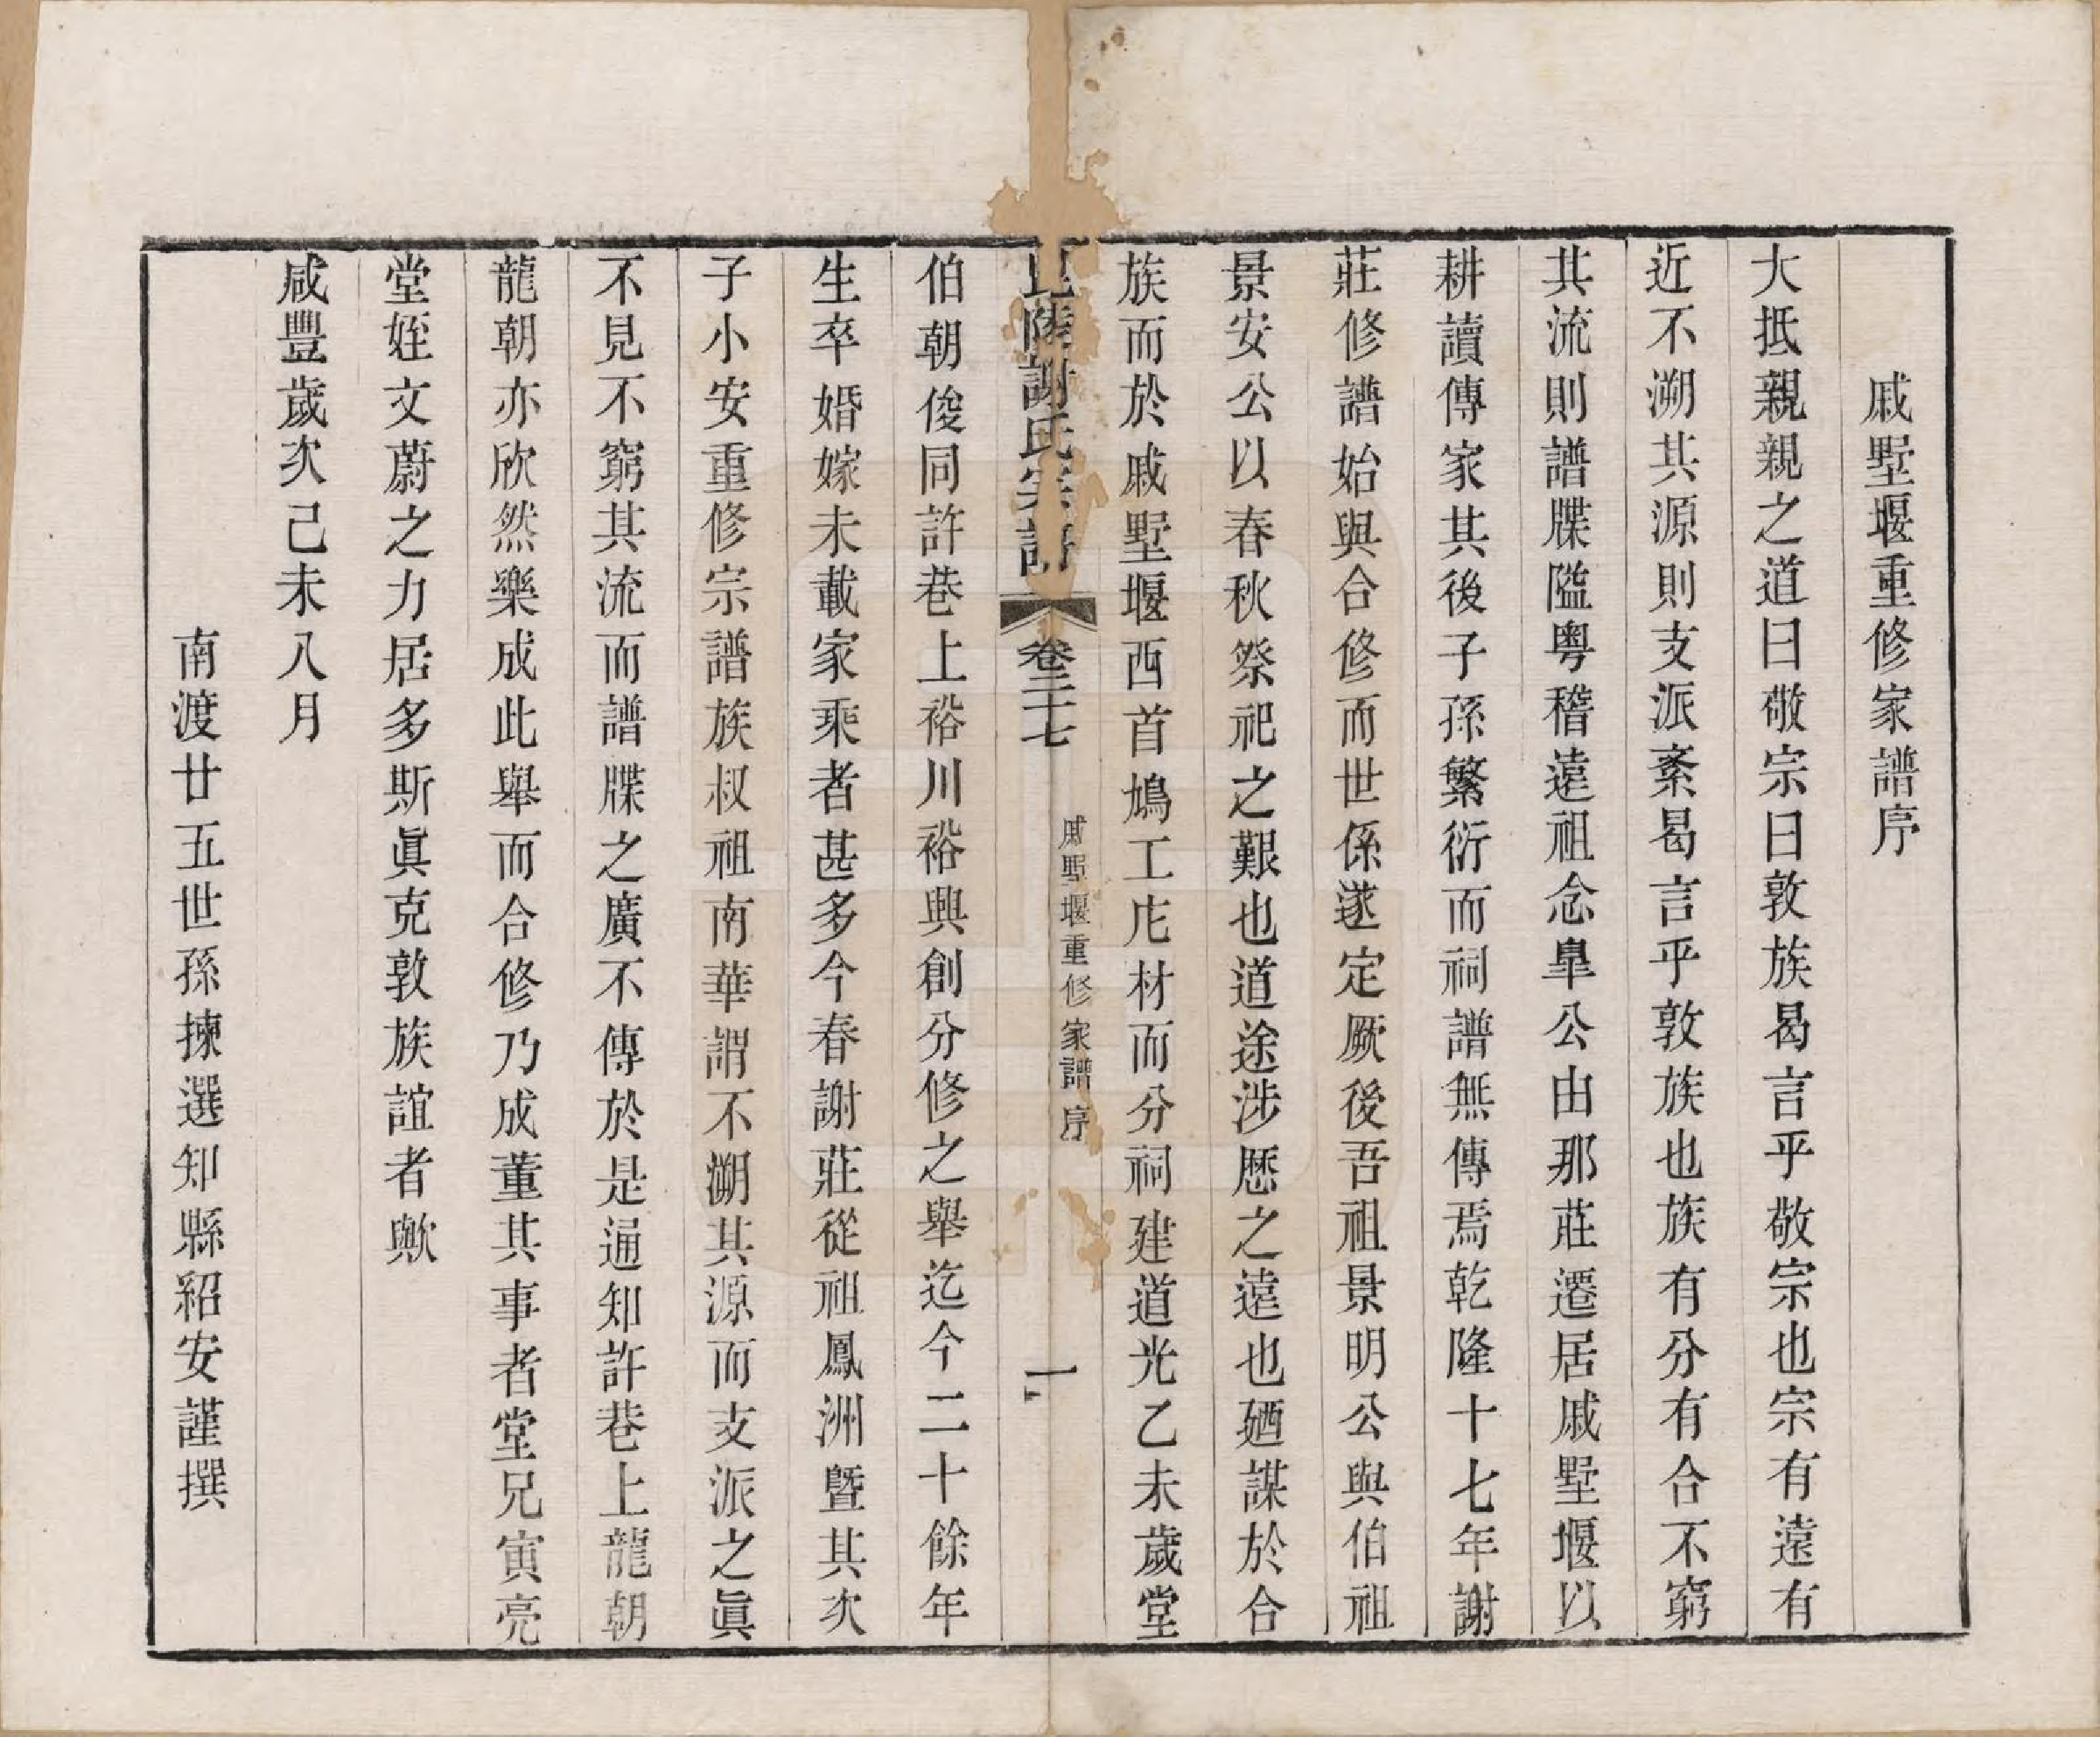 戚墅堰重修家譜序
大抵親親之道曰敬宗曰敦族曷言乎敬宗也宗有遠有
近不溯其源則支派紊曷言乎敦族也族有分有合不窮
其流則譜牒隘粤稽遠祖念臯公由那莊遷居戚墅堰以
耕讀傳家其後子孫繁衍而祠譜無傳焉乾隆十七年謝
莊修譜始與合修而世係遂定厥後吾祖景明公與伯祖
景安公以春秋祭祀之艱也道途涉歷之遠也廼謀於合
族而於戚墅堰西首鳩工庀材而分祠建道光乙未歲堂
毘陵謝氏宗譜
卷二十七
戚墅堰重修家譜序
一
伯朝俊同許巷上裕川裕興創分修之舉迄今二十餘年
生卒婚嫁未載家乘者甚多今春謝莊從祖鳳洲曁其次
子小安重修宗譜族叔祖南華謂不溯其源而支派之眞
不見不窮其流而譜牒之廣不傳於是通知許巷上龍朝
龍朝亦欣然樂成此舉而合修乃成董其事者堂兄寅亮
堂姪文蔚之力居多斯眞克敦族誼者歟
咸豐歲次己未八月
南渡廿五世孫揀選知縣紹安謹撰